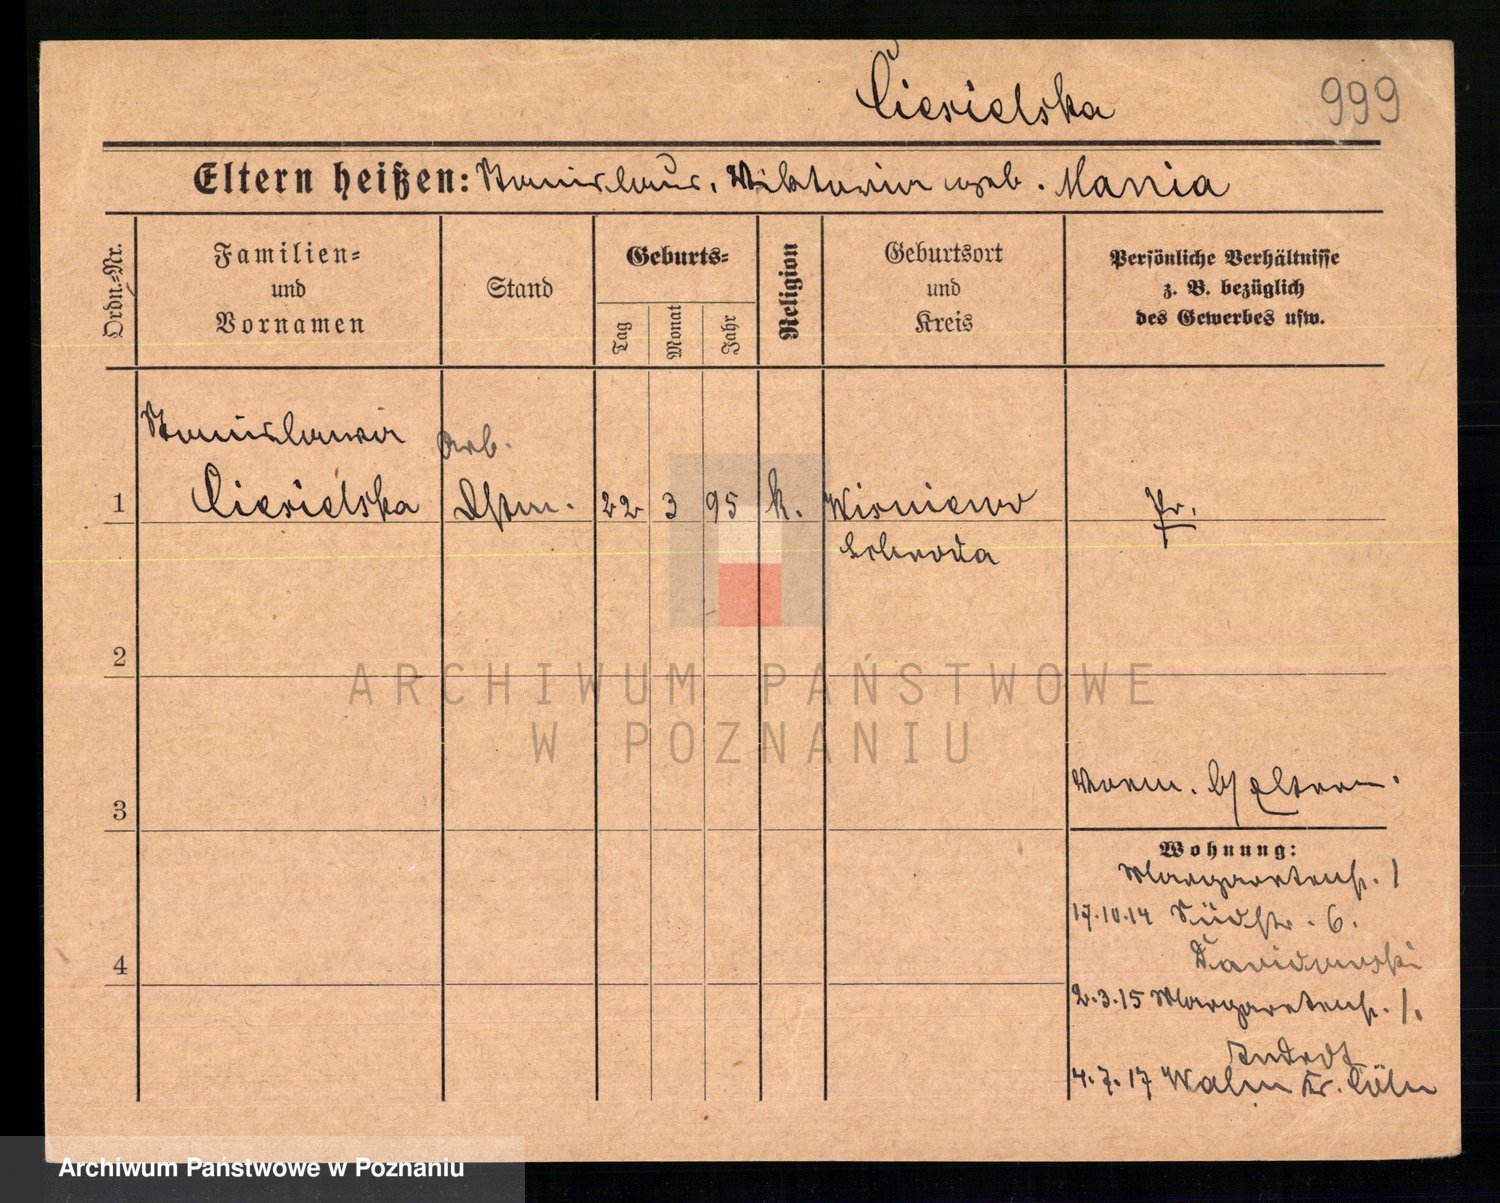 Ciesielska 999
Eltern heißen: Stanislaus, Viktoria geb. Mania
Ordn.-Nr.
Familien-
und
Vornamen
Stand
Geburts-
Tag
Monat
Jahr
Religion
Geburtsort
und
Kreis
Persönliche Verhältnisse
z. B. bezüglich
des Gewerbes usw.
Stanislawa
Arb.
1 Ciesielska Dstm. 22 3 95 k. Wisniewo Pr.
Schroda
2
ARCHIWUM PAŃSTWOWE
W POZNANIU
3
Eltern.
Wohnung:
Margaretenstr. 1
17.10.14 Südstr. 6.
4
2.3.15 Margaretenstr. 1.
4.7.17 Kr. Cöln
Archiwum Państwowe w Poznaniu